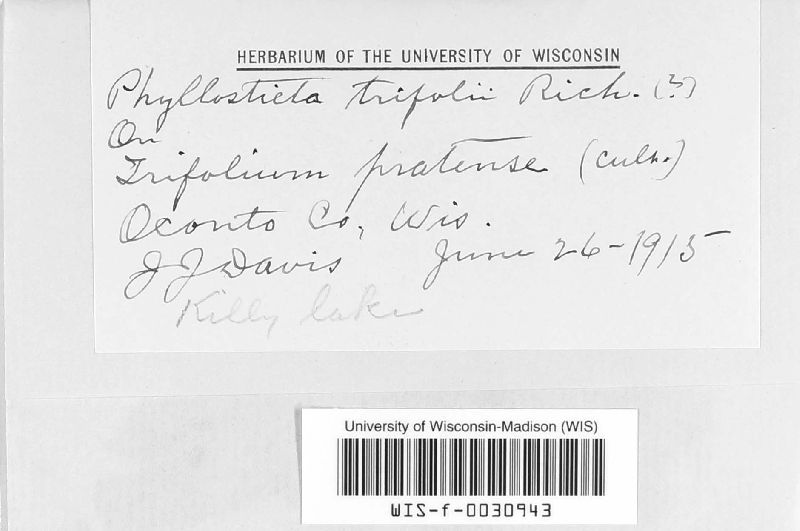 HERBARIUM OF THE UNIVERSITY OF WISCONSIN
Phyllosticta trifolii Rich. (?)
On
Trifolium pratense (cult.)
Oconto Co, Wis.
J J Davis June 26-1915
Kelly lake
University of Wisconsin-Madison (WIS)
WIS-f-0030943